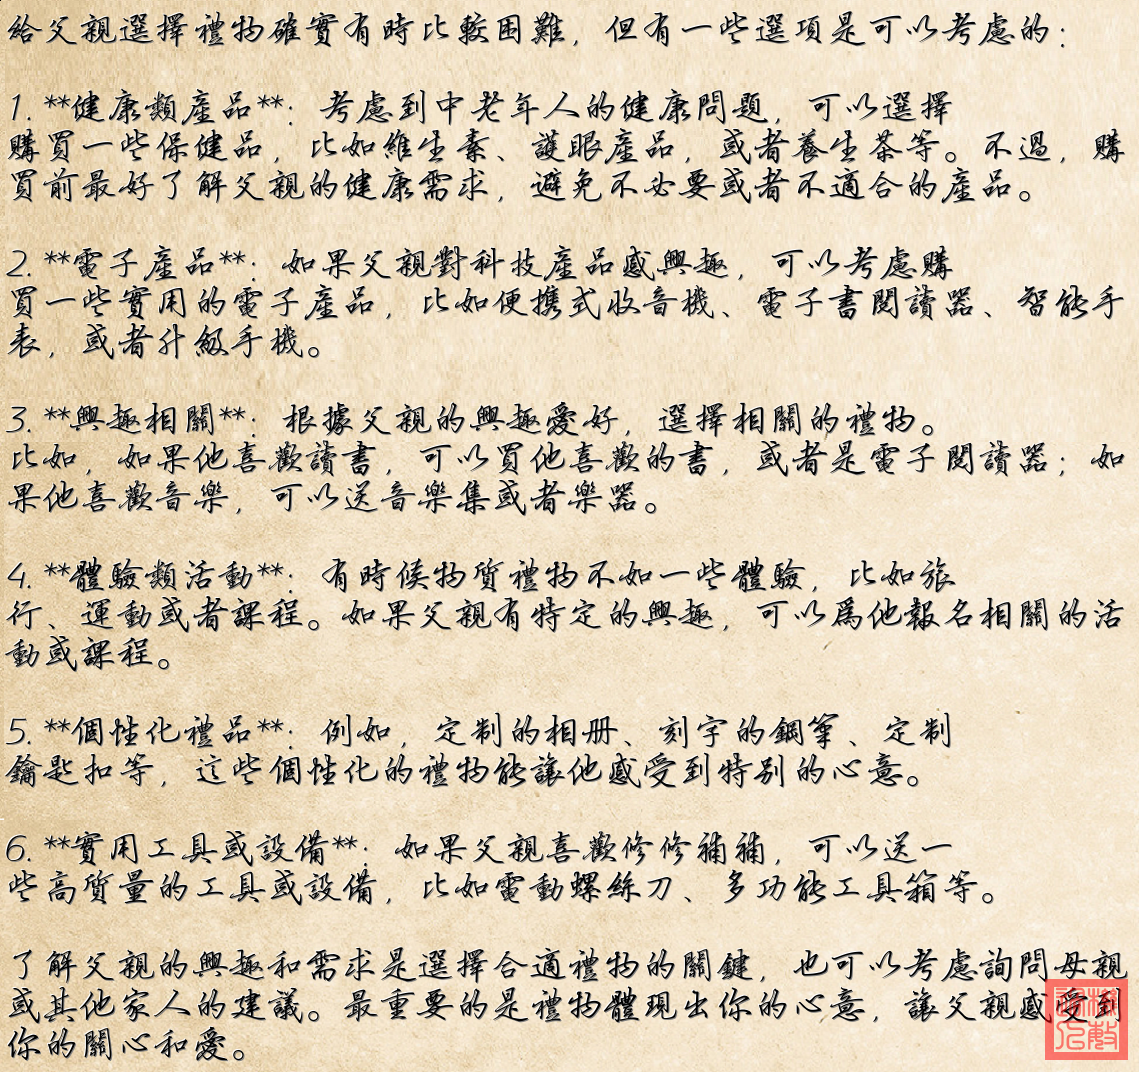 給父親選擇禮物確實有時比較困難，但有一些選項是可以考慮的：
1. **健康類產品**：考慮到中老年人的健康問題，可以選擇
購買一些保健品，比如維生素、護眼產品，或者養生茶等。不過，購
買前最好了解父親的健康需求，避免不必要或者不適合的產品。
2. **電子產品**：如果父親對科技產品感興趣，可以考慮購
買一些實用的電子產品，比如便携式收音機、電子書閱讀器、智能手
表，或者升級手機。
3. **興趣相關**：根據父親的興趣愛好，選擇相關的禮物。
比如，如果他喜歡讀書，可以買他喜歡的書，或者是電子閱讀器；如
果他喜歡音樂，可以送音樂集或者樂器。
4. **體驗類活動**：有時候物質禮物不如一些體驗，比如旅
行、運動或者課程。如果父親有特定的興趣，可以爲他報名相關的活
動或課程。
5. **個性化禮品**：例如，定制的相册、刻字的鋼筆、定制
鑰匙扣等，這些個性化的禮物能讓他感受到特別的心意。
6. **實用工具或設備**：如果父親喜歡修修補補，可以送一
些高質量的工具或設備，比如電動螺絲刀、多功能工具箱等。
了解父親的興趣和需求是選擇合適禮物的關鍵，也可以考慮詢問母親
或其他家人的建議。最重要的是禮物體現出你的心意，讓父親感受到
你的關心和愛。